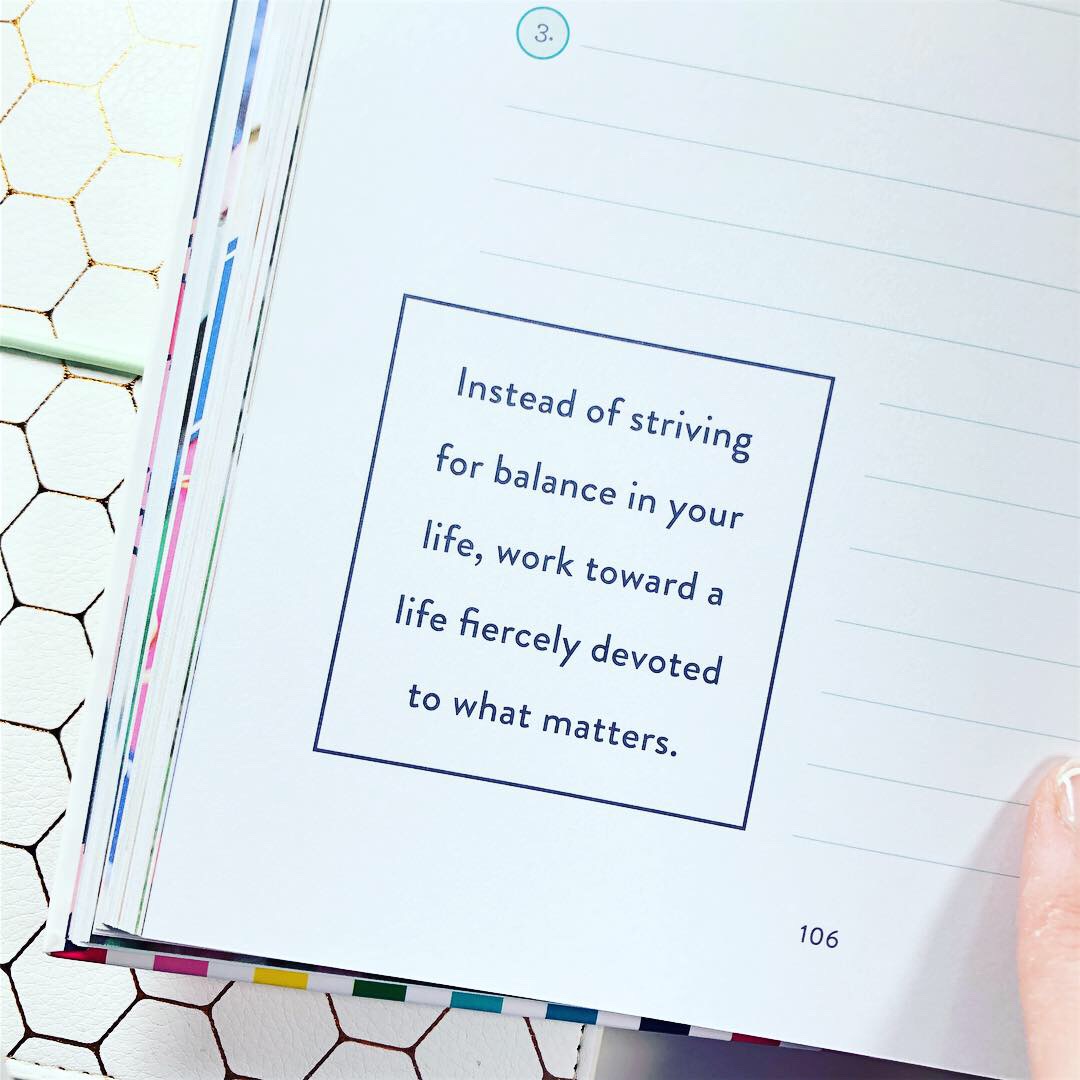 3.
Instead of striving
for balance in your
life, work toward a
life fiercely devoted
to what matters.
106